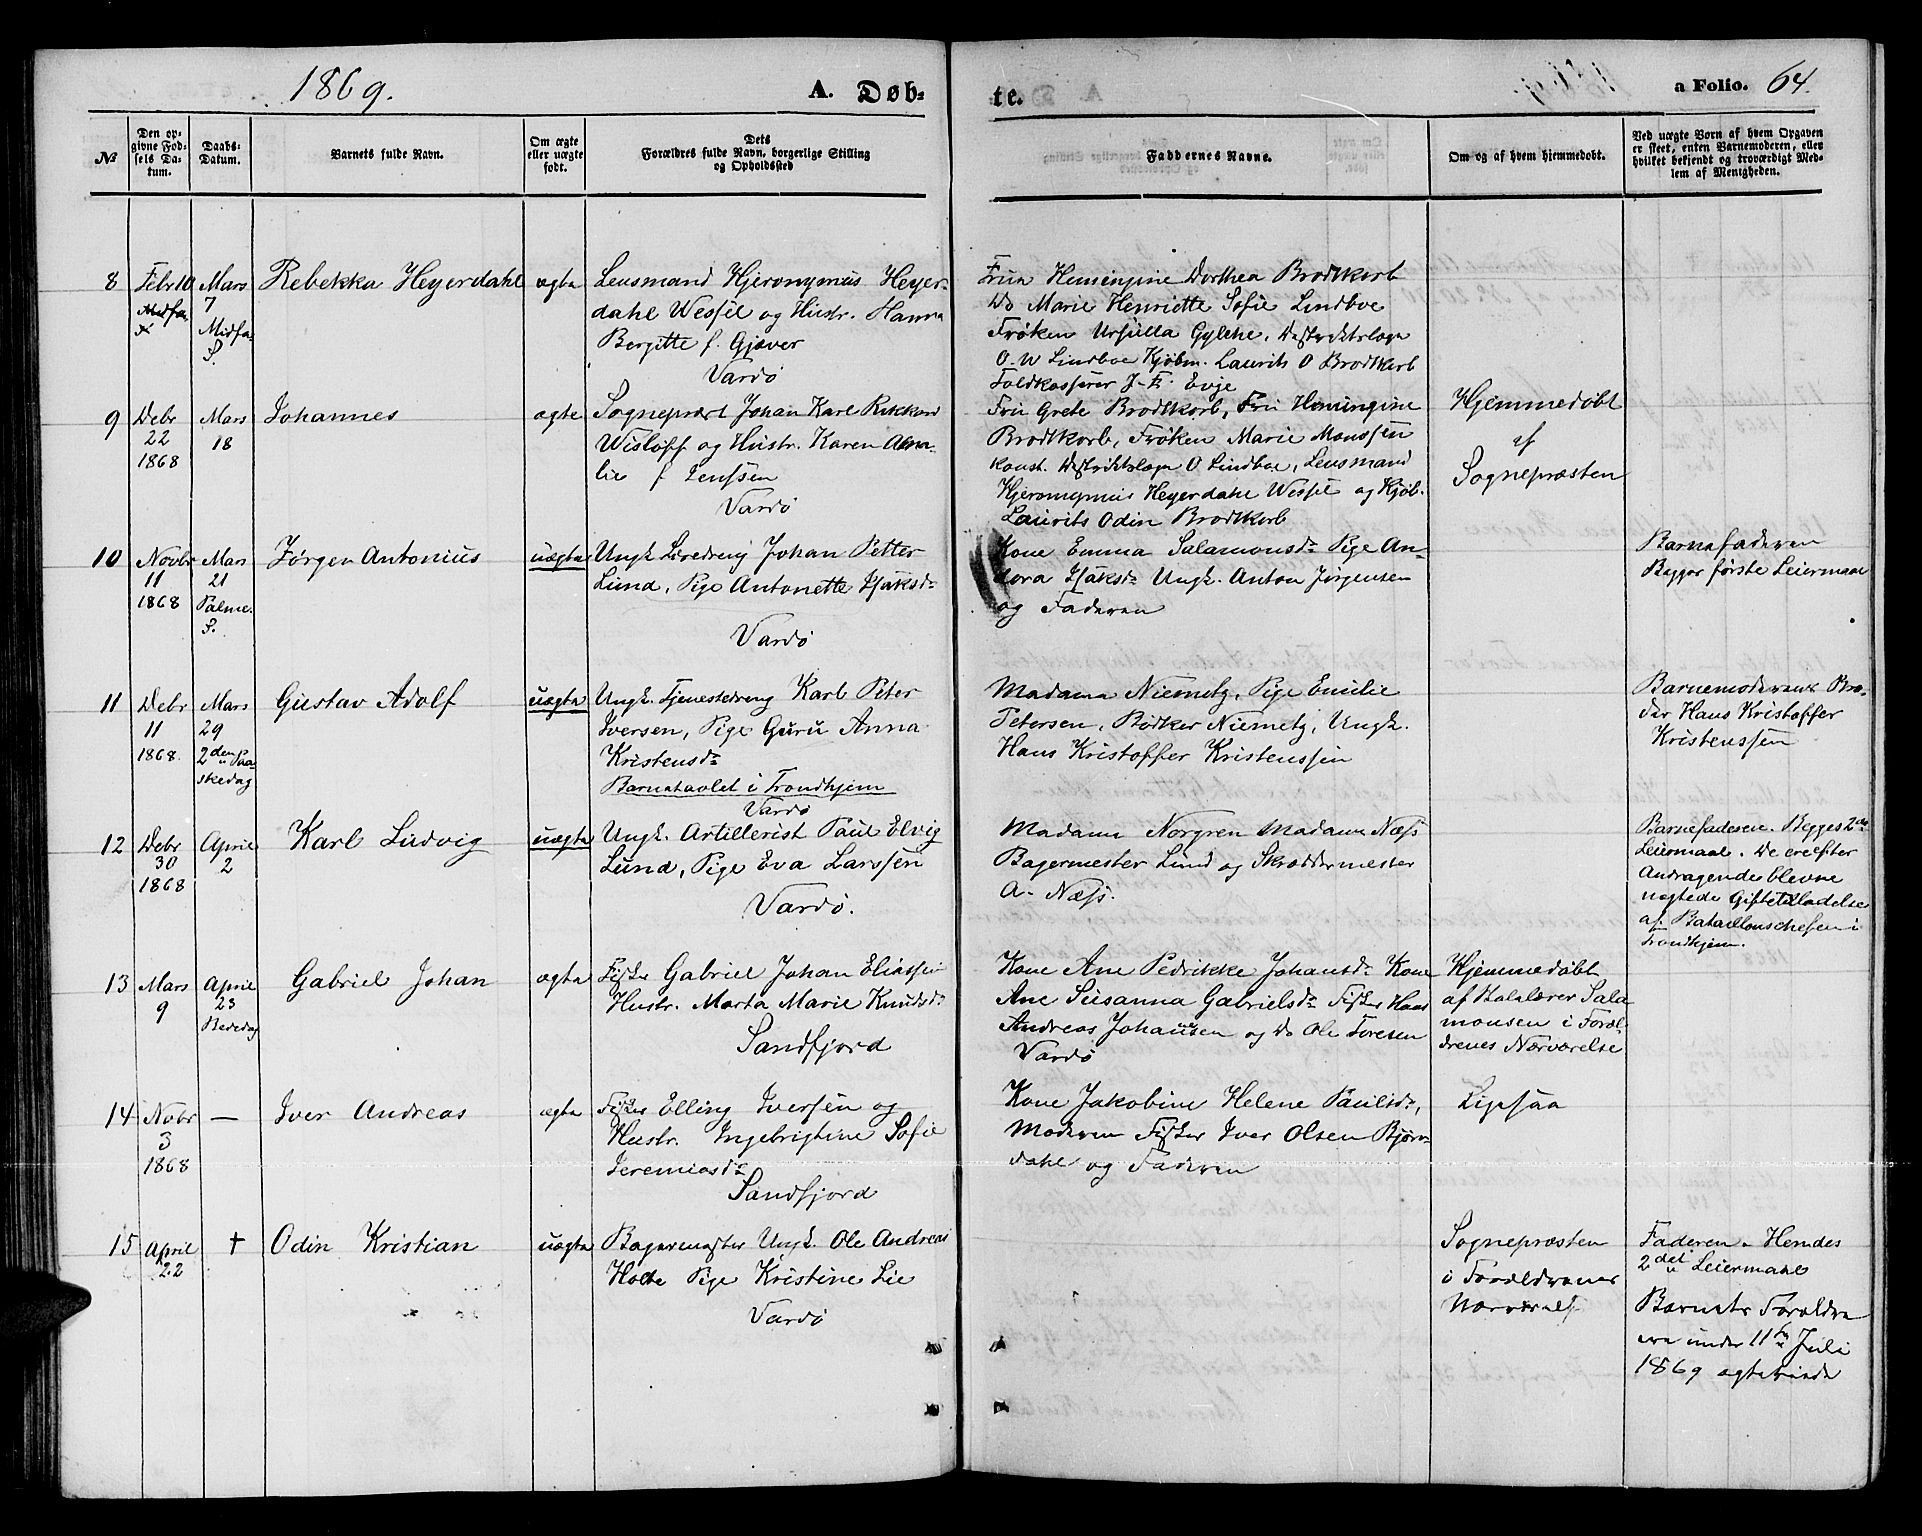 1869.
A. Døb-
te.
a Folio. 64.
№
Den op-
givne Fød-
sels Da-
tum.
Daabs-
Datum.
Barnets fulde Navn.
Om ægte
eller uægte
født.
Dets
Forældres fulde Navn, borgerlige Stilling
og Opholdssted
Faddernes Navne.
Om og af hvem hjemmedøbt.
Ved uægte Børn af hvem Opgaven
er skeet, enten Barnemoderen, eller
hvilket bekjendt og troværdigt Med-
lem af Menigheden.
8
Febr 10
Mars
7
Midfa.
S.
Rebekka Heyerdahl
ægte
Lensmand Hjeronymus Heyer-
dahl Wessel og Hustr. Hanna
Bergitte f. Gjæver
Vardø
Frua Henningine Dorthea Brodtkorb
Do Marie Henriette Sofie Lindboe
Frøken Ursulla Gylche, Destriktslæge
O. W Lindboe Kjøbm. Laurits O Brodtkorb
Toldkasserer J. F. Evje
9
Debr
22
1868
Mars
18
Johannes
ægte
Sogneprært Johan Karl Rikkard
Wisløff og Hustr. Karen Ama-
lie f Jenssen
Vardø
Fru Grete Brodtkorb, Fru Henningine
Brodtkorb, Frøken Marie Monssen
konst. Destriktslæge O Lindboe, Lensmand
Hjeronymus Heyerdahl Wessel og Kjøb.
Laurits Odin Brodtkorb
Hjemmedøbt
af
Sognepræsten
10
Novbr
11
1868
Mars
21
Palme.
S.
Jørgen Antonius
uægte
Ungk. Læredreng Johan Petter
Lund, Pige Antonette Isaksdr
Vardø
Kone Emma Salamonsdr Pige An-
dora Isaksdr Ungk. Anton Jørgensen
og Faderen
Barnefaderen
Begges første Leiermaal
11
Debr
11
1868.
Mars
29
2den Paa
skedag
Gustav Adolf
uægte
Ungk. Tjenestedreng Karl Peter
Iversen, Pige Guru Anna
Kristensdr
Barnetavlet i Trondhjem
Vardø
Madama Niemetz, Pige Emilie
Petersen, Bødker Niemetz, Ungk.
Hans Kristoffer Kristenssen
Barnemoderens Bro-
der Hans Kristoffer
Kristenssen
12
Debr
30
1868
April
2
Karl Ludvig
uægte
Ungk. Artillerist Paul Elvig
Lund, Pige Eva Larssen
Vardø.
Madama Norgren Madama Næss
Bagermester Lund og Skræddermester
A. Næss.
Barnefaderen. Begges 2de
Leiermaal. De er efter
Andragende blevne
nægtede Giftetilladelse
af Bataillonschefen i
Trondhjem.
13
Mars
9
April
23
Bededag
Gabriel Johan
ægte
Fisker Gabriel Johan Eliassen
Hustr. Marta Marie Knudsdr
Sandfjord
Kone Ane Pedrikke Johansdr Kone
Ane Susanna Gabrielsdr Fisker Hans
Andreas Johansen og Do Ole Toresen
Vardø
Hjemmedøbt
af Skolelærer Sala
monsen i Foræl-
drenes Nærværelse
14
Nobr
3
1868
—
Iver Andreas
ægte
Fisker Elling Iversen og
Hustr. Ingebrigtine Sofie
Jeremiasdr
Sandfjord
Kone Jakobine Helene Paulsdr,
Moderen Fisker Iver Olsen Bjørn-
dahl og Faderen
Ligesaa
15
April
22
†
Odin Kristian
uægte
Bagermester Ungk. Ole Andreas
Holte Pige Kristine Lie
Vardø
Sognepræsten
i Forældrenes
Nærværelse
Faderen. Hendes
2det Leiermahl
Barnets Forældre
ere under 11te Juli
1869 ægteviede